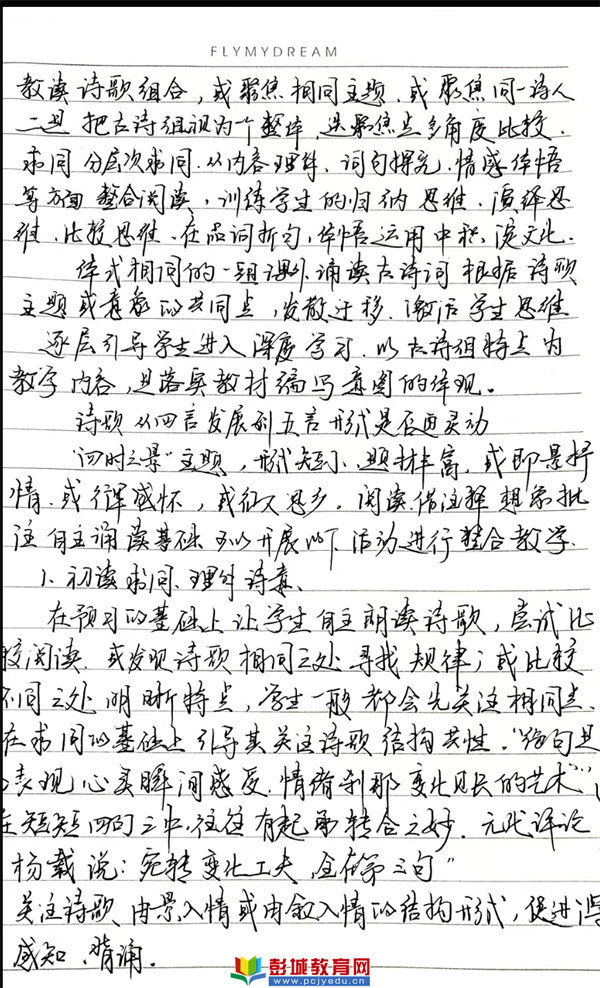 FLYMYDREAM
教读诗歌组合，或聚焦相同主题，或聚焦同一诗人
二是把古诗组视为个整体，选聚焦点多角度比较，
求同分层次求同．从内容理解，词句探究，情感体悟
等方面整合阅读，训练学生的归纳思维、演绎思
维、比较思维．在品词析句，体悟运用中积淀文化．
体式相同的一组课外诵读古诗词根据诗歌
主题或意象的共同点，发散迁移．激活学生思维
逐层引导学生进入深度学习．以古诗组特点为
教学内容，是落实教材编写意图的体现。
诗歌从四言发展到五言形式是否更灵动
"四时之景"主题，形式短小、题材丰富，或即景抒
情，或行军感怀，或征人思乡．阅读．借注释想象批
注自主诵读基础可以开展以下活动进行整合教学．
1、初读求同、理解诗意、
在预习的基础上让学生自主朗读诗歌，尝试比
较阅读．或发现诗歌相同之处寻找规律；或比较
不同之处明晰特点，学生一般都会先关注相同点．
在求同的基础上引导其关注诗歌结构共性．"绝句是
表现心灵瞬间感受．情绪刹那变化见长的艺术"
在短短四句之中，往往有起承转合之妙．元代评论
杨载说：宛转变化工夫，全在第三句"
关注诗歌由景入情或由叙入情的结构形式，促进
感知、精诵．
彭城教育网
www.pcjyedu.cn